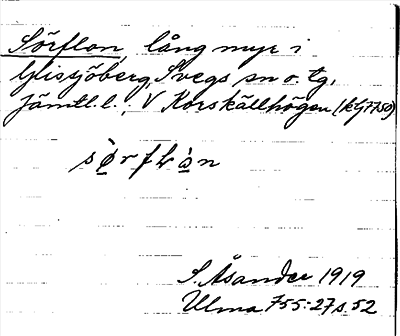 Sörflon, lång myr i
Glissjöberg, Svegs sn o. tg,
Jämtl. l., V Korskällhögen (kg 7750)
S. Åsander 1919
Ulma 755:27 s. 52